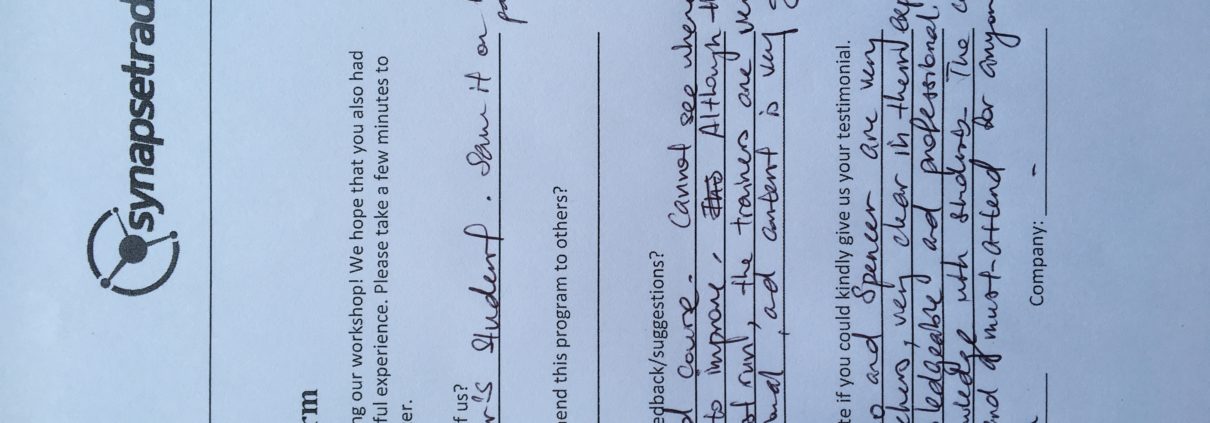 synapsetrad
rm
ng our workshop! We hope that you also had
ful experience. Please take a few minutes to
er.
f us?
r's student. Saw it on
mend this program to others?
edback/suggestions?
d course. Cannot see where
to improve. Although th
st run, the trainers are ver
nal, and content is very
te if you could kindly give us your testimonial.
o and Spencer are very
chers, very clear in them exp
ledgeable and professional.
wledge with students. The c
and must-attend for anyon
Company: -